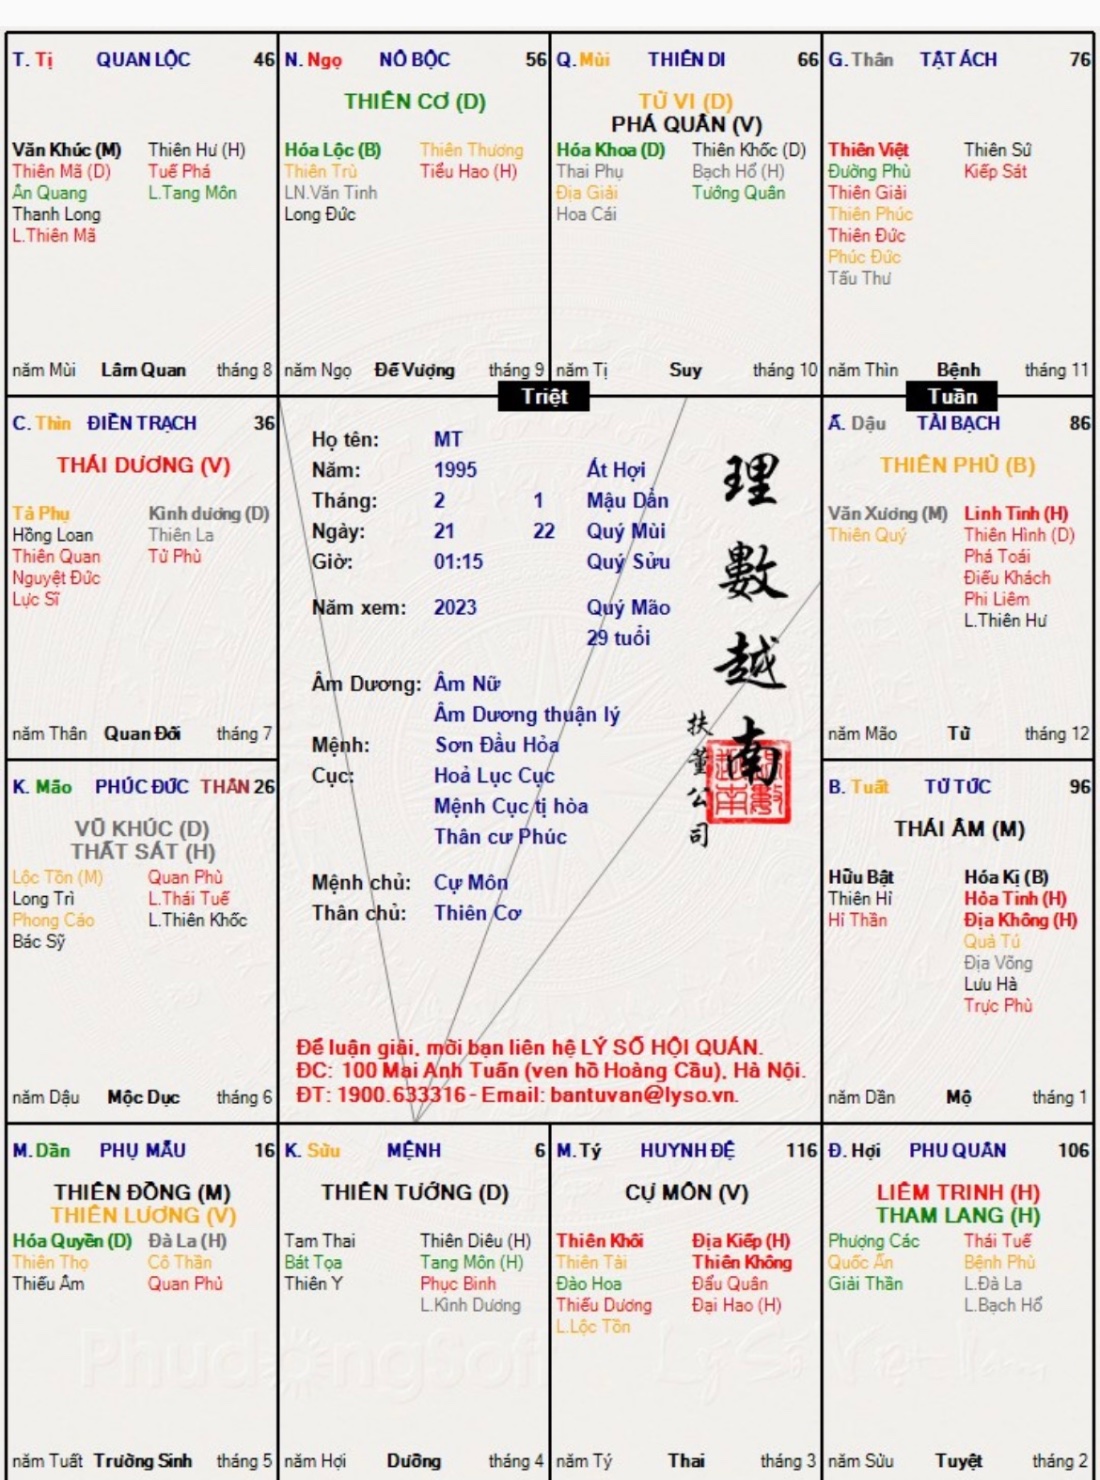 T. Tị QUAN LỘC 46
Văn Khúc (M) Thiên Hư (H)
Thiên Mã (D) Tuế Phá
Ân Quang L.Tang Môn
Thanh Long
L.Thiên Mã
năm Mùi Lâm Quan tháng 8
N. Ngọ NÔ BỘC 56
THIÊN CƠ (D)
Hóa Lộc (B) Thiên Thương
Thiên Trù Tiểu Hao (H)
LN.Văn Tinh
Long Đức
năm Ngọ Đế Vượng tháng 9
Q. Mùi THIÊN DI 66
TỬ VI (D)
PHÁ QUÂN (V)
Hóa Khoa (D) Thiên Khốc (D)
Thai Phụ Bạch Hổ (H)
Địa Giải Tướng Quân
Hoa Cái
năm Tị Suy tháng 10
G. Thân TẬT ÁCH 76
Thiên Việt Thiên Sứ
Đường Phù Kiếp Sát
Thiên Giải
Thiên Phúc
Thiên Đức
Phúc Đức
Tấu Thư
năm Thìn Bệnh tháng 11
Triệt
Tuần
C. Thìn ĐIỀN TRẠCH 36
THÁI DƯƠNG (V)
Tả Phụ Kình dương (D)
Hồng Loan Thiên La
Thiên Quan Tử Phù
Nguyệt Đức
Lực Sĩ
năm Thân Quan Đới tháng 7
Họ tên: MT
Năm: 1995 Ất Hợi
Tháng: 2 1 Mậu Dần
Ngày: 21 22 Quý Mùi
Giờ: 01:15 Quý Sửu
Năm xem: 2023 Quý Mão
29 tuổi
Âm Dương: Âm Nữ
Âm Dương thuận lý
Mệnh: Sơn Đầu Hỏa
Cục: Hoả Lục Cục
Mệnh Cục tị hòa
Thân cư Phúc
Mệnh chủ: Cự Môn
Thân chủ: Thiên Cơ
理數越南
扶董公司
Để luận giải, mời bạn liên hệ LÝ SỐ HỘI QUÁN.
ĐC: 100 Mai Anh Tuấn (ven hồ Hoàng Cầu), Hà Nội.
ĐT: 1900.633316 - Email: bantuvan@lyso.vn.
Ấ. Dậu TÀI BẠCH 86
THIÊN PHỦ (B)
Văn Xương (M) Linh Tinh (H)
Thiên Quý Thiên Hình (D)
Phá Toái
Điếu Khách
Phi Liêm
L.Thiên Hư
năm Mão Tử tháng 12
K. Mão PHÚC ĐỨC THÂN 26
VŨ KHÚC (D)
THẤT SÁT (H)
Lộc Tồn (M) Quan Phù
Long Trì L.Thái Tuế
Phong Cáo L.Thiên Khốc
Bác Sỹ
năm Dậu Mộc Dục tháng 6
B. Tuất TỬ TỨC 96
THÁI ÂM (M)
Hữu Bật Hóa Kị (B)
Thiên Hỉ Hỏa Tinh (H)
Hỉ Thần Địa Không (H)
Quả Tú
Địa Võng
Lưu Hà
Trực Phù
năm Dần Mộ tháng 1
M. Dần PHỤ MẪU 16
THIÊN ĐỒNG (M)
THIÊN LƯƠNG (V)
Hóa Quyền (D) Đà La (H)
Thiên Thọ Cô Thần
Thiếu Âm Quan Phủ
năm Tuất Trường Sinh tháng 5
K. Sửu MỆNH 6
THIÊN TƯỚNG (D)
Tam Thai Thiên Diêu (H)
Bát Tọa Tang Môn (H)
Thiên Y Phục Binh
L.Kình Dương
năm Hợi Dưỡng tháng 4
M. Tý HUYNH ĐỆ 116
CỰ MÔN (V)
Thiên Khôi Địa Kiếp (H)
Thiên Tài Thiên Không
Đào Hoa Đẩu Quân
Thiếu Dương Đại Hao (H)
L.Lộc Tồn
năm Tý Thai tháng 3
Đ. Hợi PHU QUÂN 106
LIÊM TRINH (H)
THAM LANG (H)
Phượng Các Thái Tuế
Quốc Ấn Bệnh Phù
Giải Thần L.Đà La
L.Bạch Hổ
năm Sửu Tuyệt tháng 2
PhudongSoft Lý Số Việt Nam